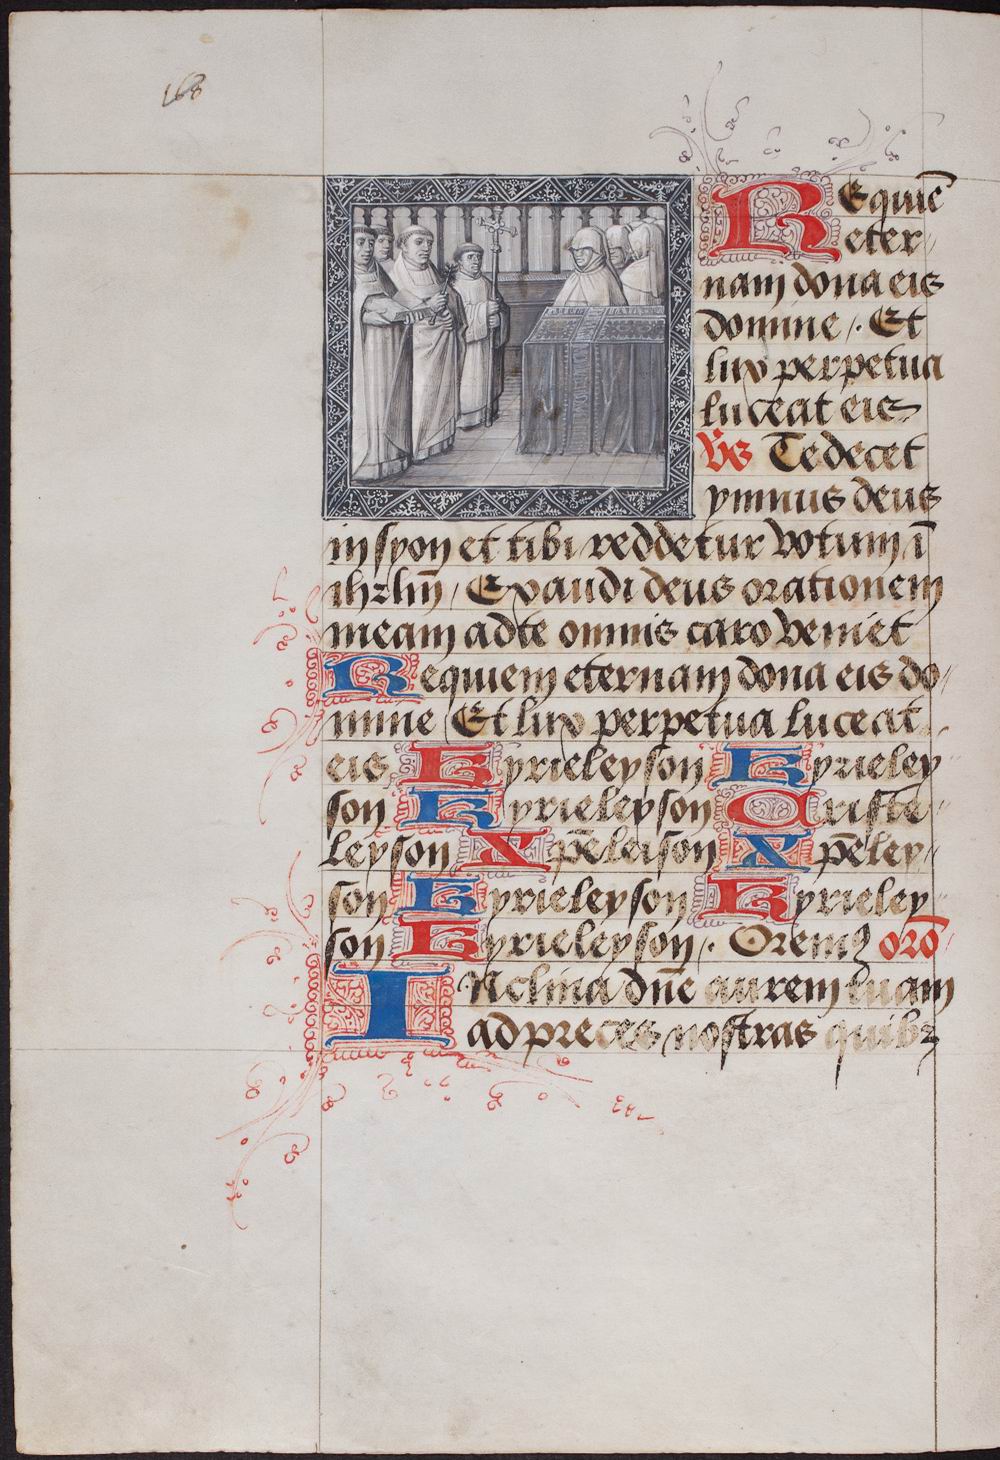 168
Requiē
eter
nam dona eis
domine ⁄· Et
lux perpetua
luceat eis
Vs Te decet
ymnus deus
in syon et tibi reddetur votum ī
ihrlm̄ / Exaudi deus orationem
meam ad te omnis caro veniet
Requiem eternam dona eis do
mine Et lux perpetua luceat
eis Kyrieleyson Kyrieley
son Kyrieleyson Criste
leyson Xp̄eleison Xp̄eley
son Kyrieleyson Kyrieley
son Kyrieleyson ⁄· Oremꝯ orō
Inclina dn̄e aurem tuam
ad preces nostras quibꝫ